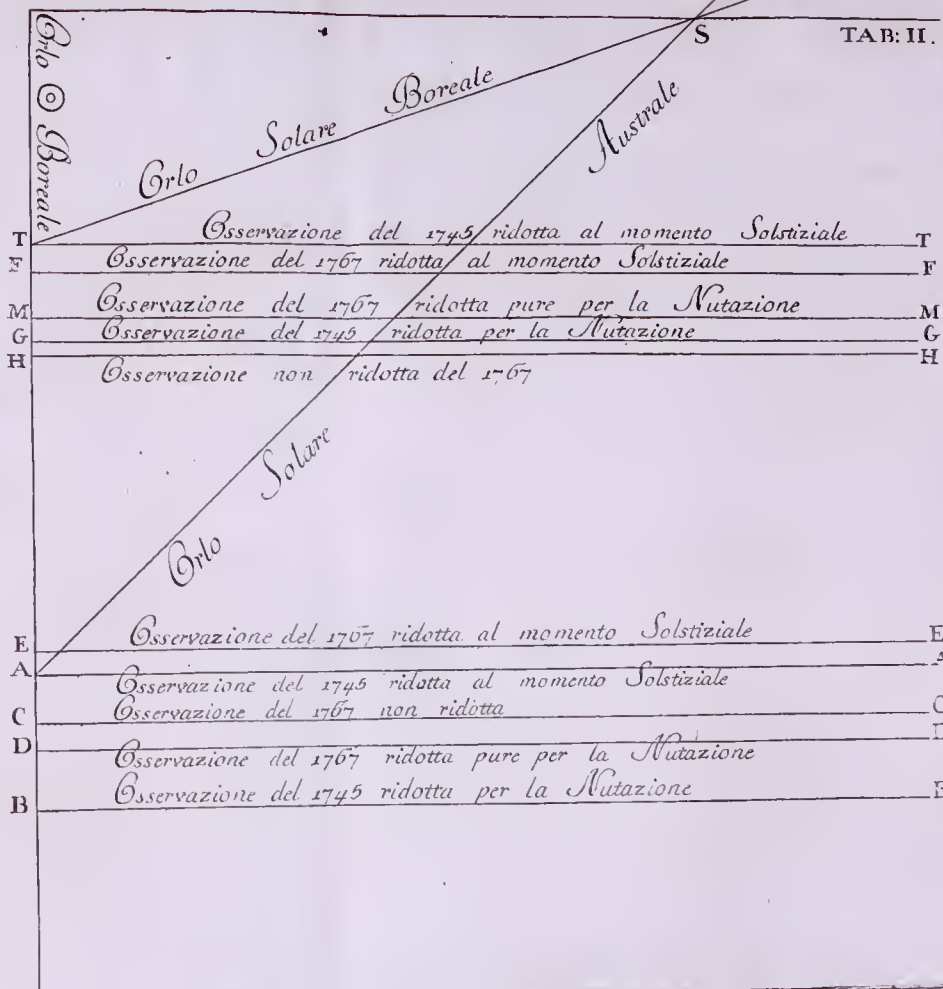 S TAB: II.
Orlo ☉ Boreale
Orlo Solare Boreale
Australe
T Osservazione del 1745 ridotta al momento Solstiziale T
F Osservazione del 1767 ridotta al momento Solstiziale F
M Osservazione del 1767 ridotta pure per la Nutazione M
G Osservazione del 1745 ridotta per la Nutazione G
H H
Osservazione non ridotta del 1767
Solare
Orlo
E Osservazione del 1767 ridotta al momento Solstiziale E
A A
Osservazione del 1745 ridotta al momento Solstiziale
C Osservazione del 1767 non ridotta C
D D
Osservazione del 1767 ridotta pure per la Nutazione
B Osservazione del 1745 ridotta per la Nutazione B